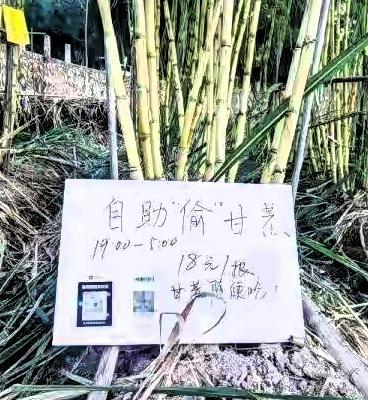 自助“偷”甘蔗
19:00-5:00
18元/根
甘蔗随便吃!